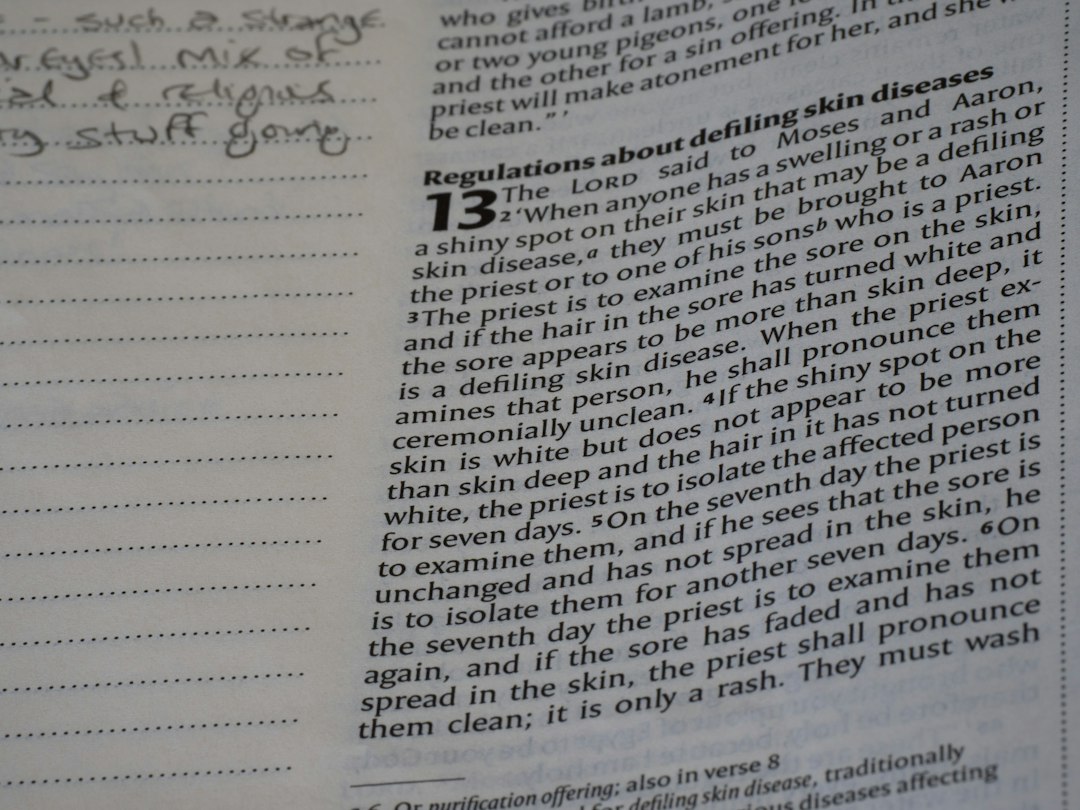 - such a strange
eyes! mix of
& religious
stuff going
who gives
cannot afford a lamb,
or two young pigeons, one
and the other for a sin offering. In
priest will make atonement for her, and she
be clean." '
Regulations about defiling skin diseases
13 The LORD said to Moses and Aaron,
2 'When anyone has a swelling or a rash or
a shiny spot on their skin that may be a defiling
skin disease,a they must be brought to Aaron
the priest or to one of his sonsb who is a priest.
3 The priest is to examine the sore on the skin,
and if the hair in the sore has turned white and
the sore appears to be more than skin deep, it
is a defiling skin disease. When the priest ex-
amines that person, he shall pronounce them
ceremonially unclean. 4 If the shiny spot on the
skin is white but does not appear to be more
than skin deep and the hair in it has not turned
white, the priest is to isolate the affected person
for seven days. 5 On the seventh day the priest is
to examine them, and if he sees that the sore is
unchanged and has not spread in the skin, he
is to isolate them for another seven days. 6 On
the seventh day the priest is to examine them
again, and if the sore has faded and has not
spread in the skin, the priest shall pronounce
them clean; it is only a rash. They must wash
Or purification offering; also in verse 8
for defiling skin disease, traditionally
diseases affecting